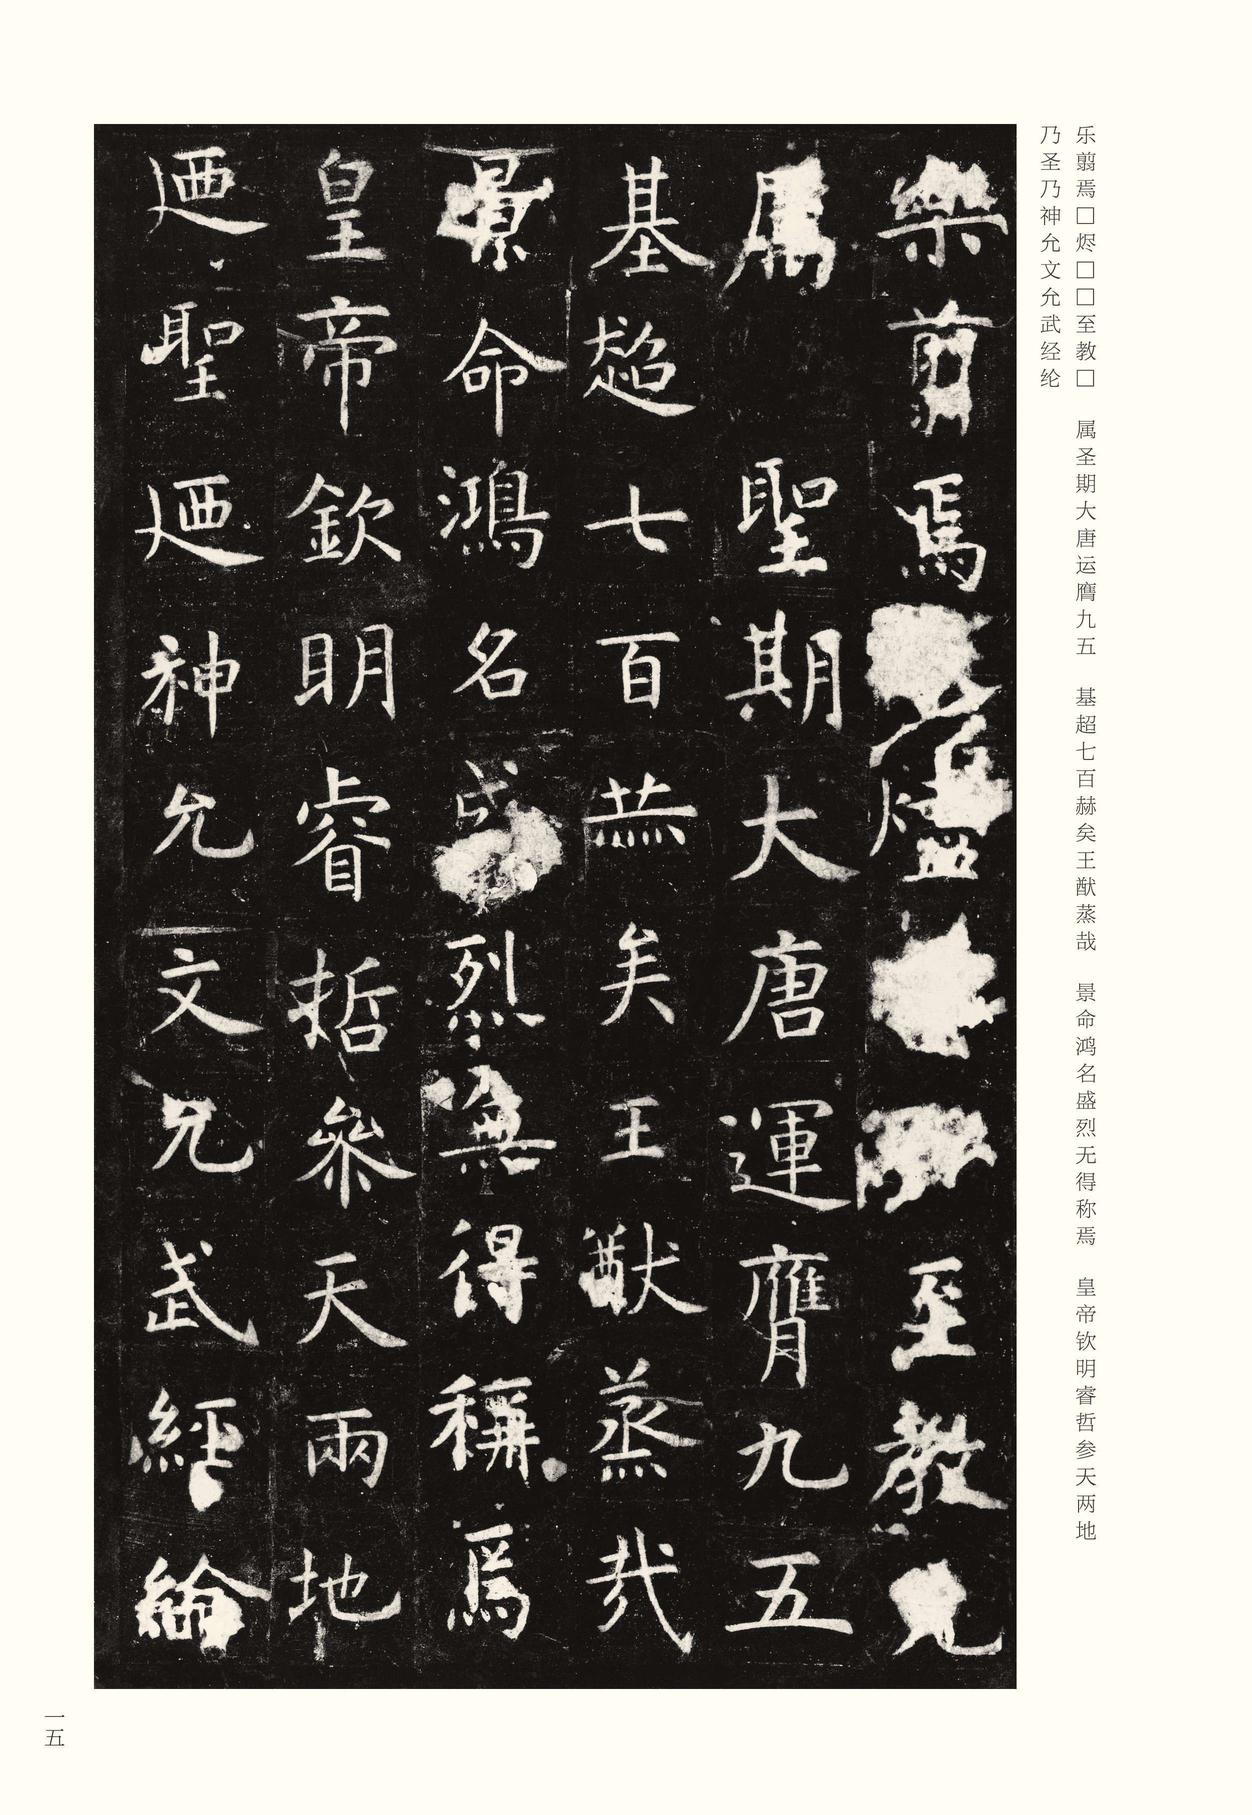 乐翦焉□烬□□至教□　属圣期大唐运膺九五　基超七百赫矣王猷蒸哉　景命鸿名盛烈无得称焉　皇帝钦明睿哲参天两地
乃圣乃神允文允武经纶
樂翦焉燼至教
屬聖期大唐運膺九五
基超七百赫矣王猷蒸哉
景命鴻名盛烈無得稱焉
皇帝欽明睿哲參天兩地
迺聖迺神允文允武經綸
一五